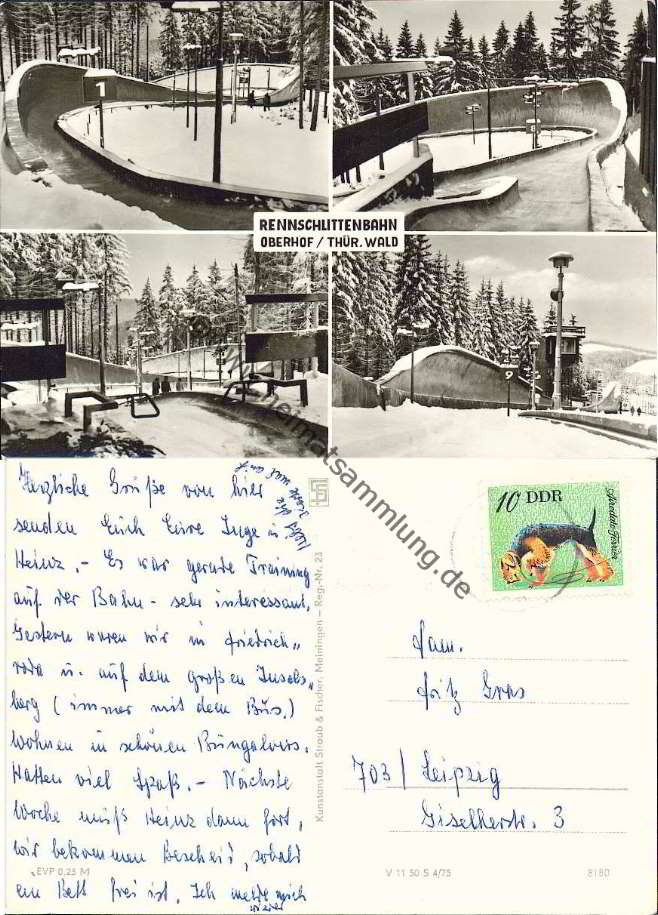 1
RENNSCHLITTENBAHN
OBERHOF / THÜR. WALD
9
www.heimatsammlung.de
Herzliche Grüße von hier
senden Euch Eure Inge u.
Heinz. - Es war gerade Training
auf der Bahn - sehr interessant.
Gestern waren wir in Friedrich„
roda u. auf dem großen Insels„
berg (immer mit dem Bus.)
Wohnen in schönen Bungalows.
Hatten viel Spaß. - Nächste
Woche muß Heinz dann fort,
wir bekommen Bescheid, sobald
ein Bett frei ist. Ich melde mich
wieder
EVP 0,25 M
Kunstanstalt Straub & Fischer, Meiningen – Reg.-Nr. 23
10 DDR
Airedale-Terrier
Fam.
Fritz Gras
703 / Leipzig
Giselherstr. 3
V 11 50 S 4/75
8180